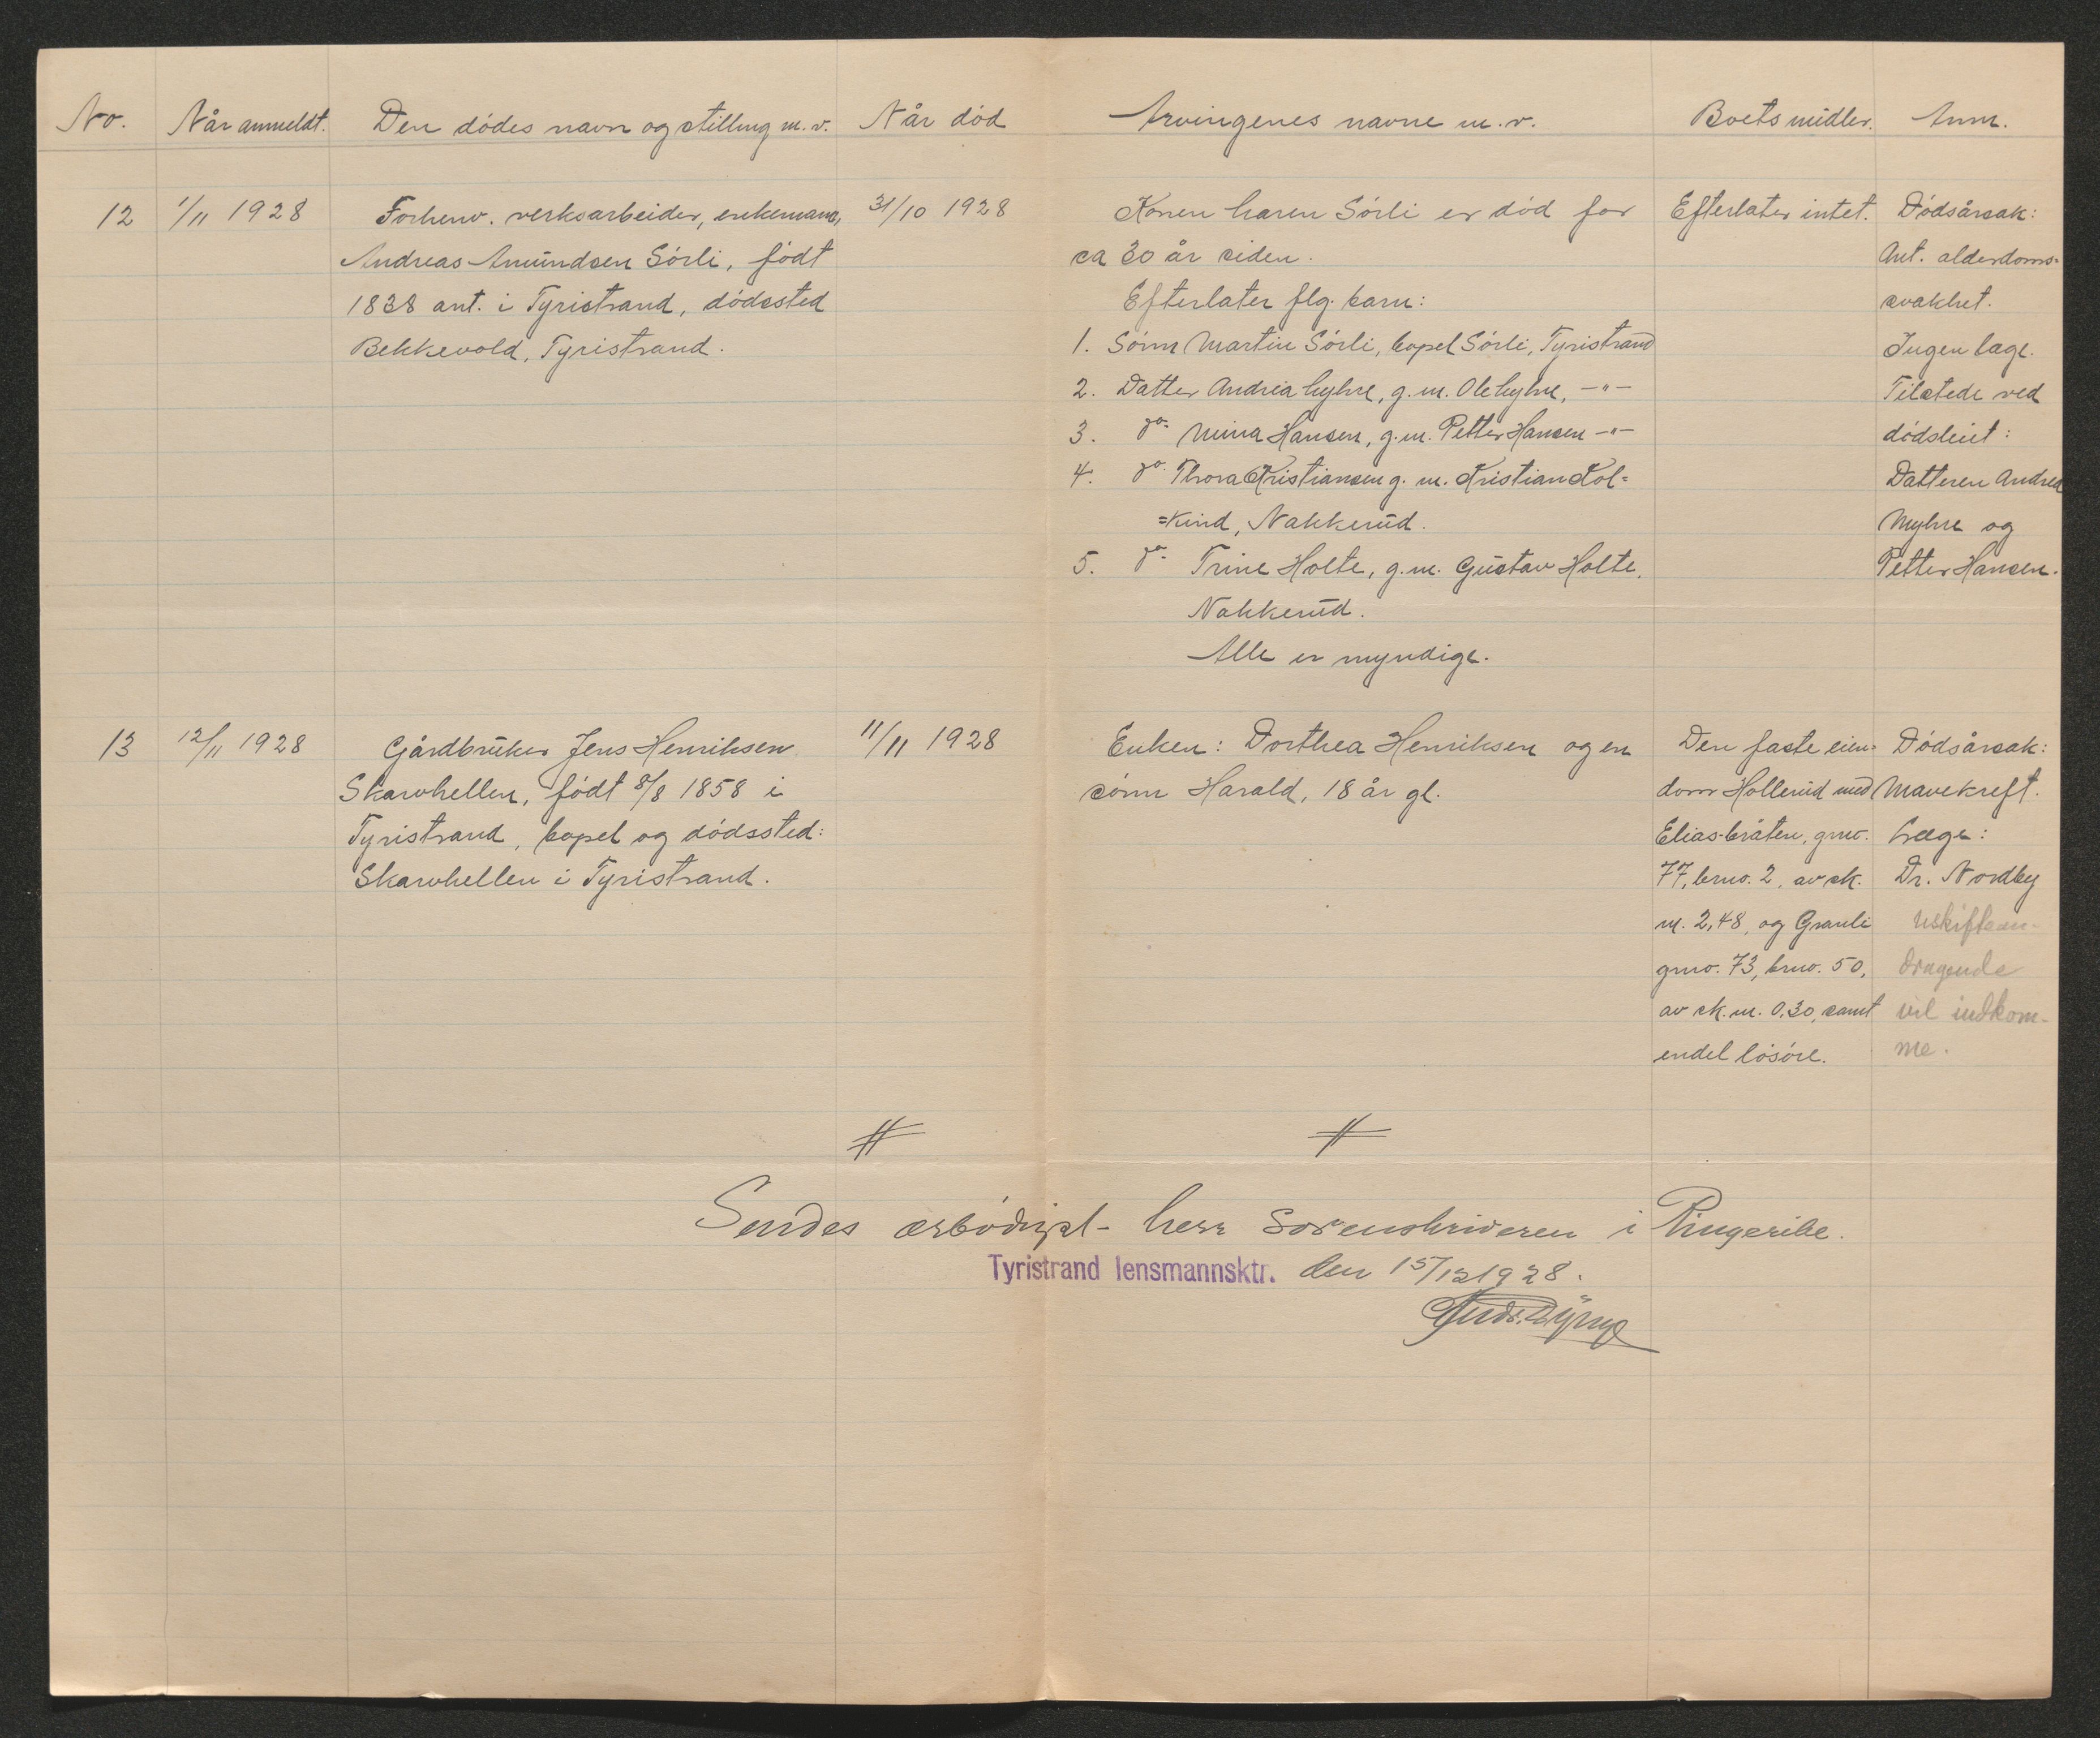 No. Når anmeldt. Den dødes navn og stilling m.v. Når død Arvingenes navne m.v. Boets midler. Anm.
12 1/11 1928 Forhenv. verksarbeider, enkemann, 31/10 1928
Andreas Amundsen Sørli, født
1838 ant. i Tyristrand, dødssted
Bekkevold, Tyristrand.
Konen Karen Sørli er død for
ca 30 år siden.
Efterlater flg. barn:
1. Sønn Martin Sørli, bopel Sørli, Tyristrand
2. Datter Andrea Myhre, g.m. Ole Myhre, -"-
3. do. Mina Hansen, g.m. Petter Hansen -"-
4. do. Thora Kristiansen g.m. Kristian Kol=
=kind, Nakkerud.
5. do. Trine Holte, g.m. Gustav Holte,
Nakkerud.
Alle er myndige.
Efterlater intet.
Dødsårsak:
Ant. alderdoms=
svakhet.
Ingen læge.
Tilstede ved
dødsleiet:
Datteren Andrea
Myhre og
Petter Hansen.
13 12/11 1928 Gårdbruker Jens Henriksen 11/11 1928
Skarvhellen, født 8/8 1858 i
Tyristrand, bopel og dødssted:
Skarvhellen i Tyristrand.
Enken: Dorthea Henriksen og en
sønn Harald, 18 år gl.
Den faste eien=
dom Hollerud med
Elias-bråten, grno.
77, brno. 2, av sk.
m. 2,48, og Granli
grno. 73, brno. 50,
av sk.m. 0,30, samt
endel løsøre.
Dødsårsak:
Mavekreft.
Læge:
Dr. Nordby
Uskiftean-
dragende
vil indkom-
me.
Sendes ærbødigst herr Sorenskriveren i Ringerike.
Tyristrand lensmannsktr. den 15/12 1928.